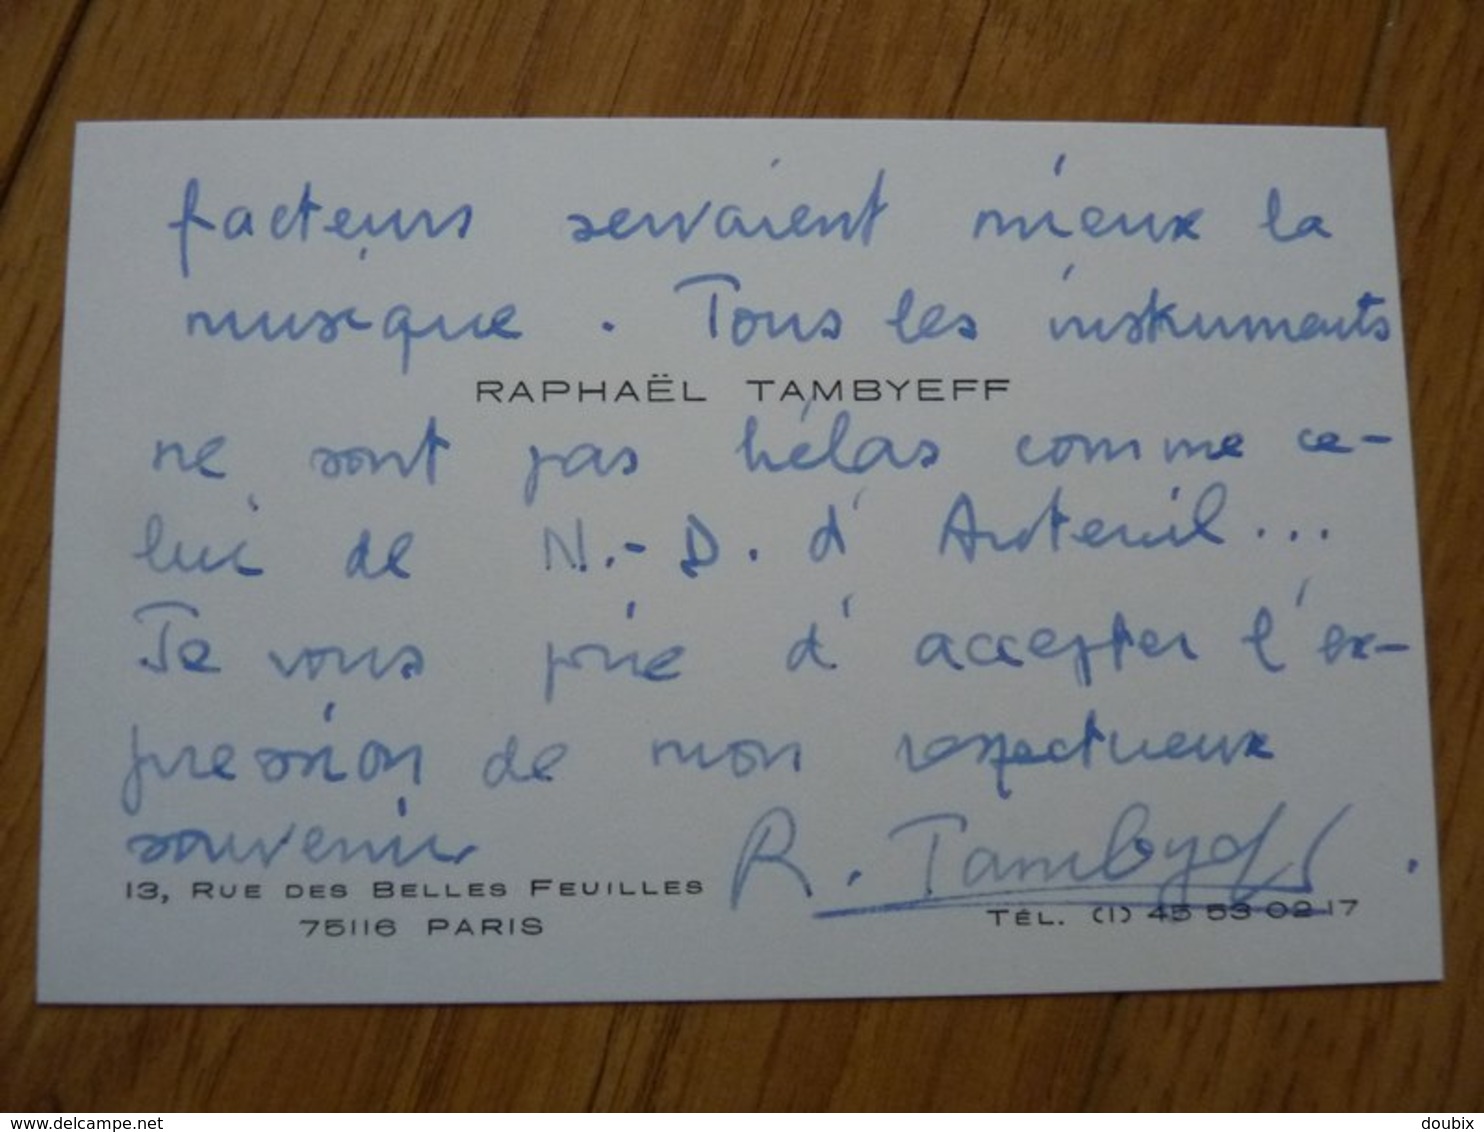 facteurs servaient mieux la
musique. Tous les instruments
RAPHAËL TAMBYEFF
ne sont pas hélas comme ce-
lui de N.-D. d'Auteuil...
Je vous prie d'accepter l'ex-
pression de mon respectueux
souvenir R. Tambyeff.
13, RUE DES BELLES FEUILLES
75116 PARIS
TÉL. (1) 45 53 02 17
www.delcampe.net
doubix